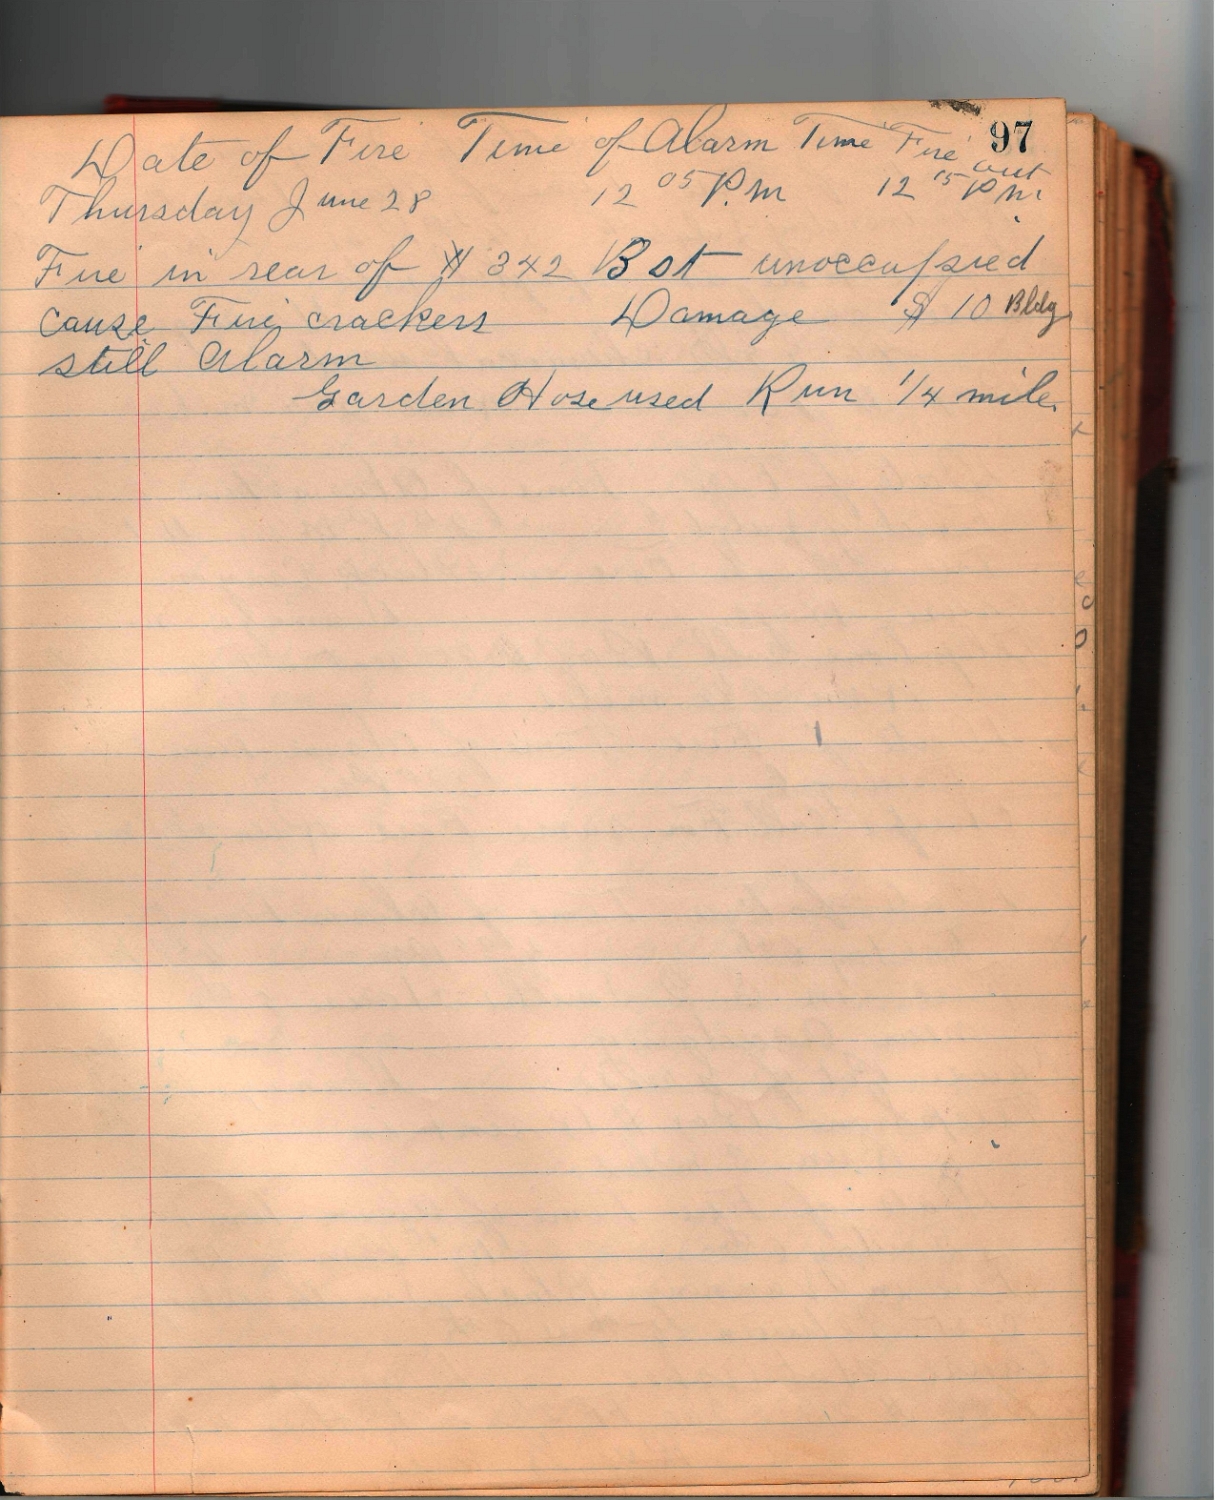 97
Date of Fire Time of Alarm Time Fire out
Thursday June 28 12 05 P.M 12 15 P.M.
Fire in rear of # 342 B st unoccupied
cause Fire crackers Damage $ 10 Bldg
still Alarm
Garden Hose used Run 1/4 mile.